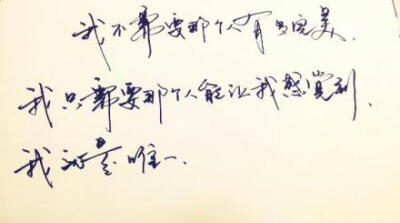 我不需要那个人有多完美,
我只需要那个人能让我感觉到,
我就是唯一.